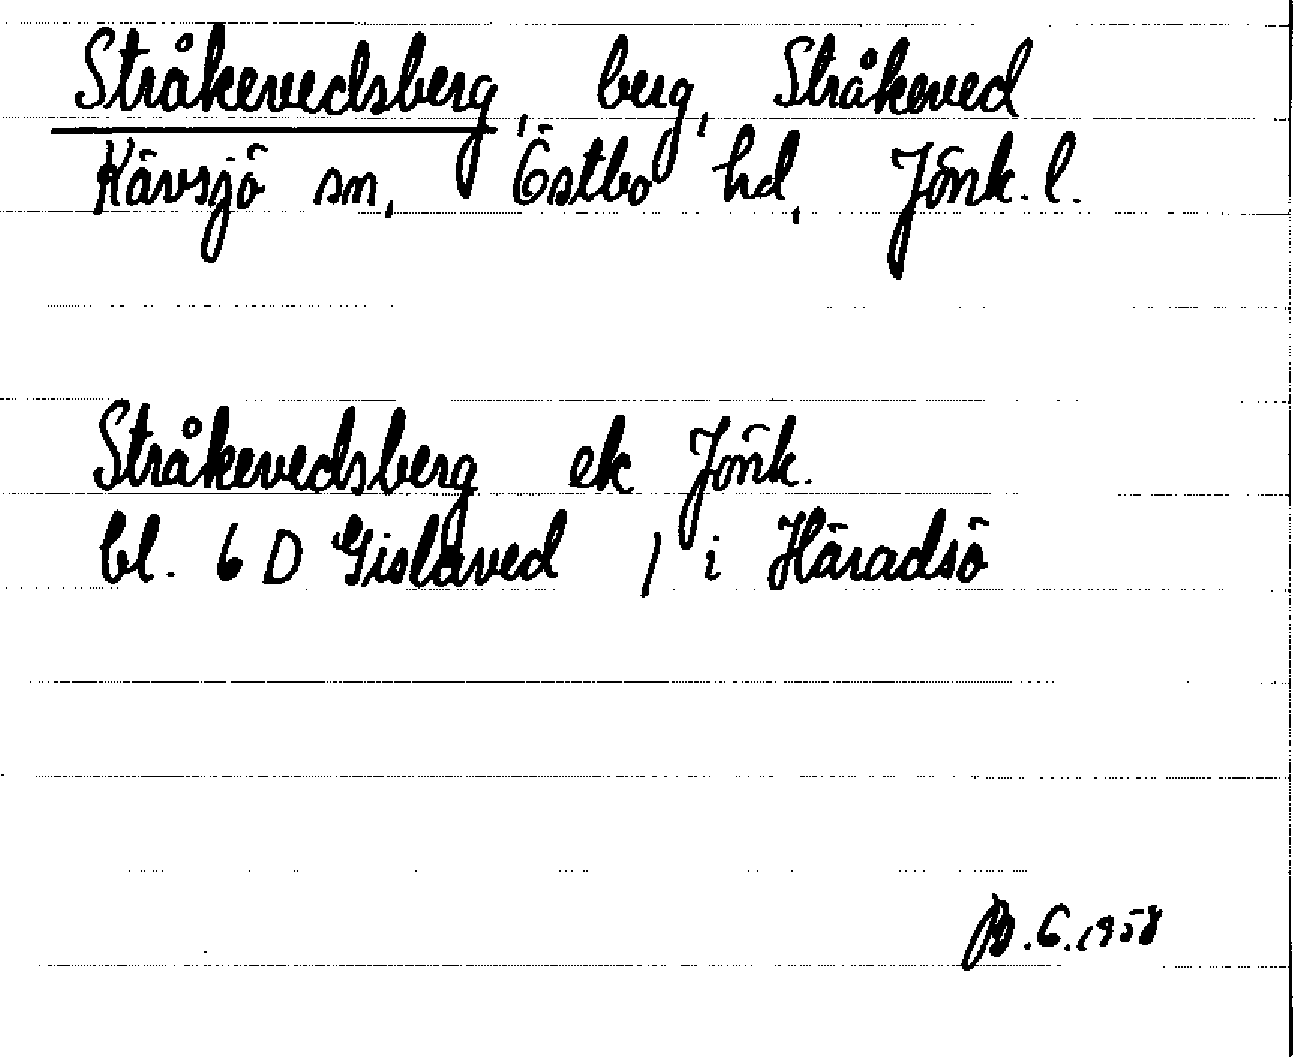 Stråkevedsberg, berg, Stråkeved
Kävsjö sn, Östbo hd, Jönk. l.
Stråkevedsberg ek Jönk.
bl. 6 D Gislaved / i Häradsö
B.G. 1958